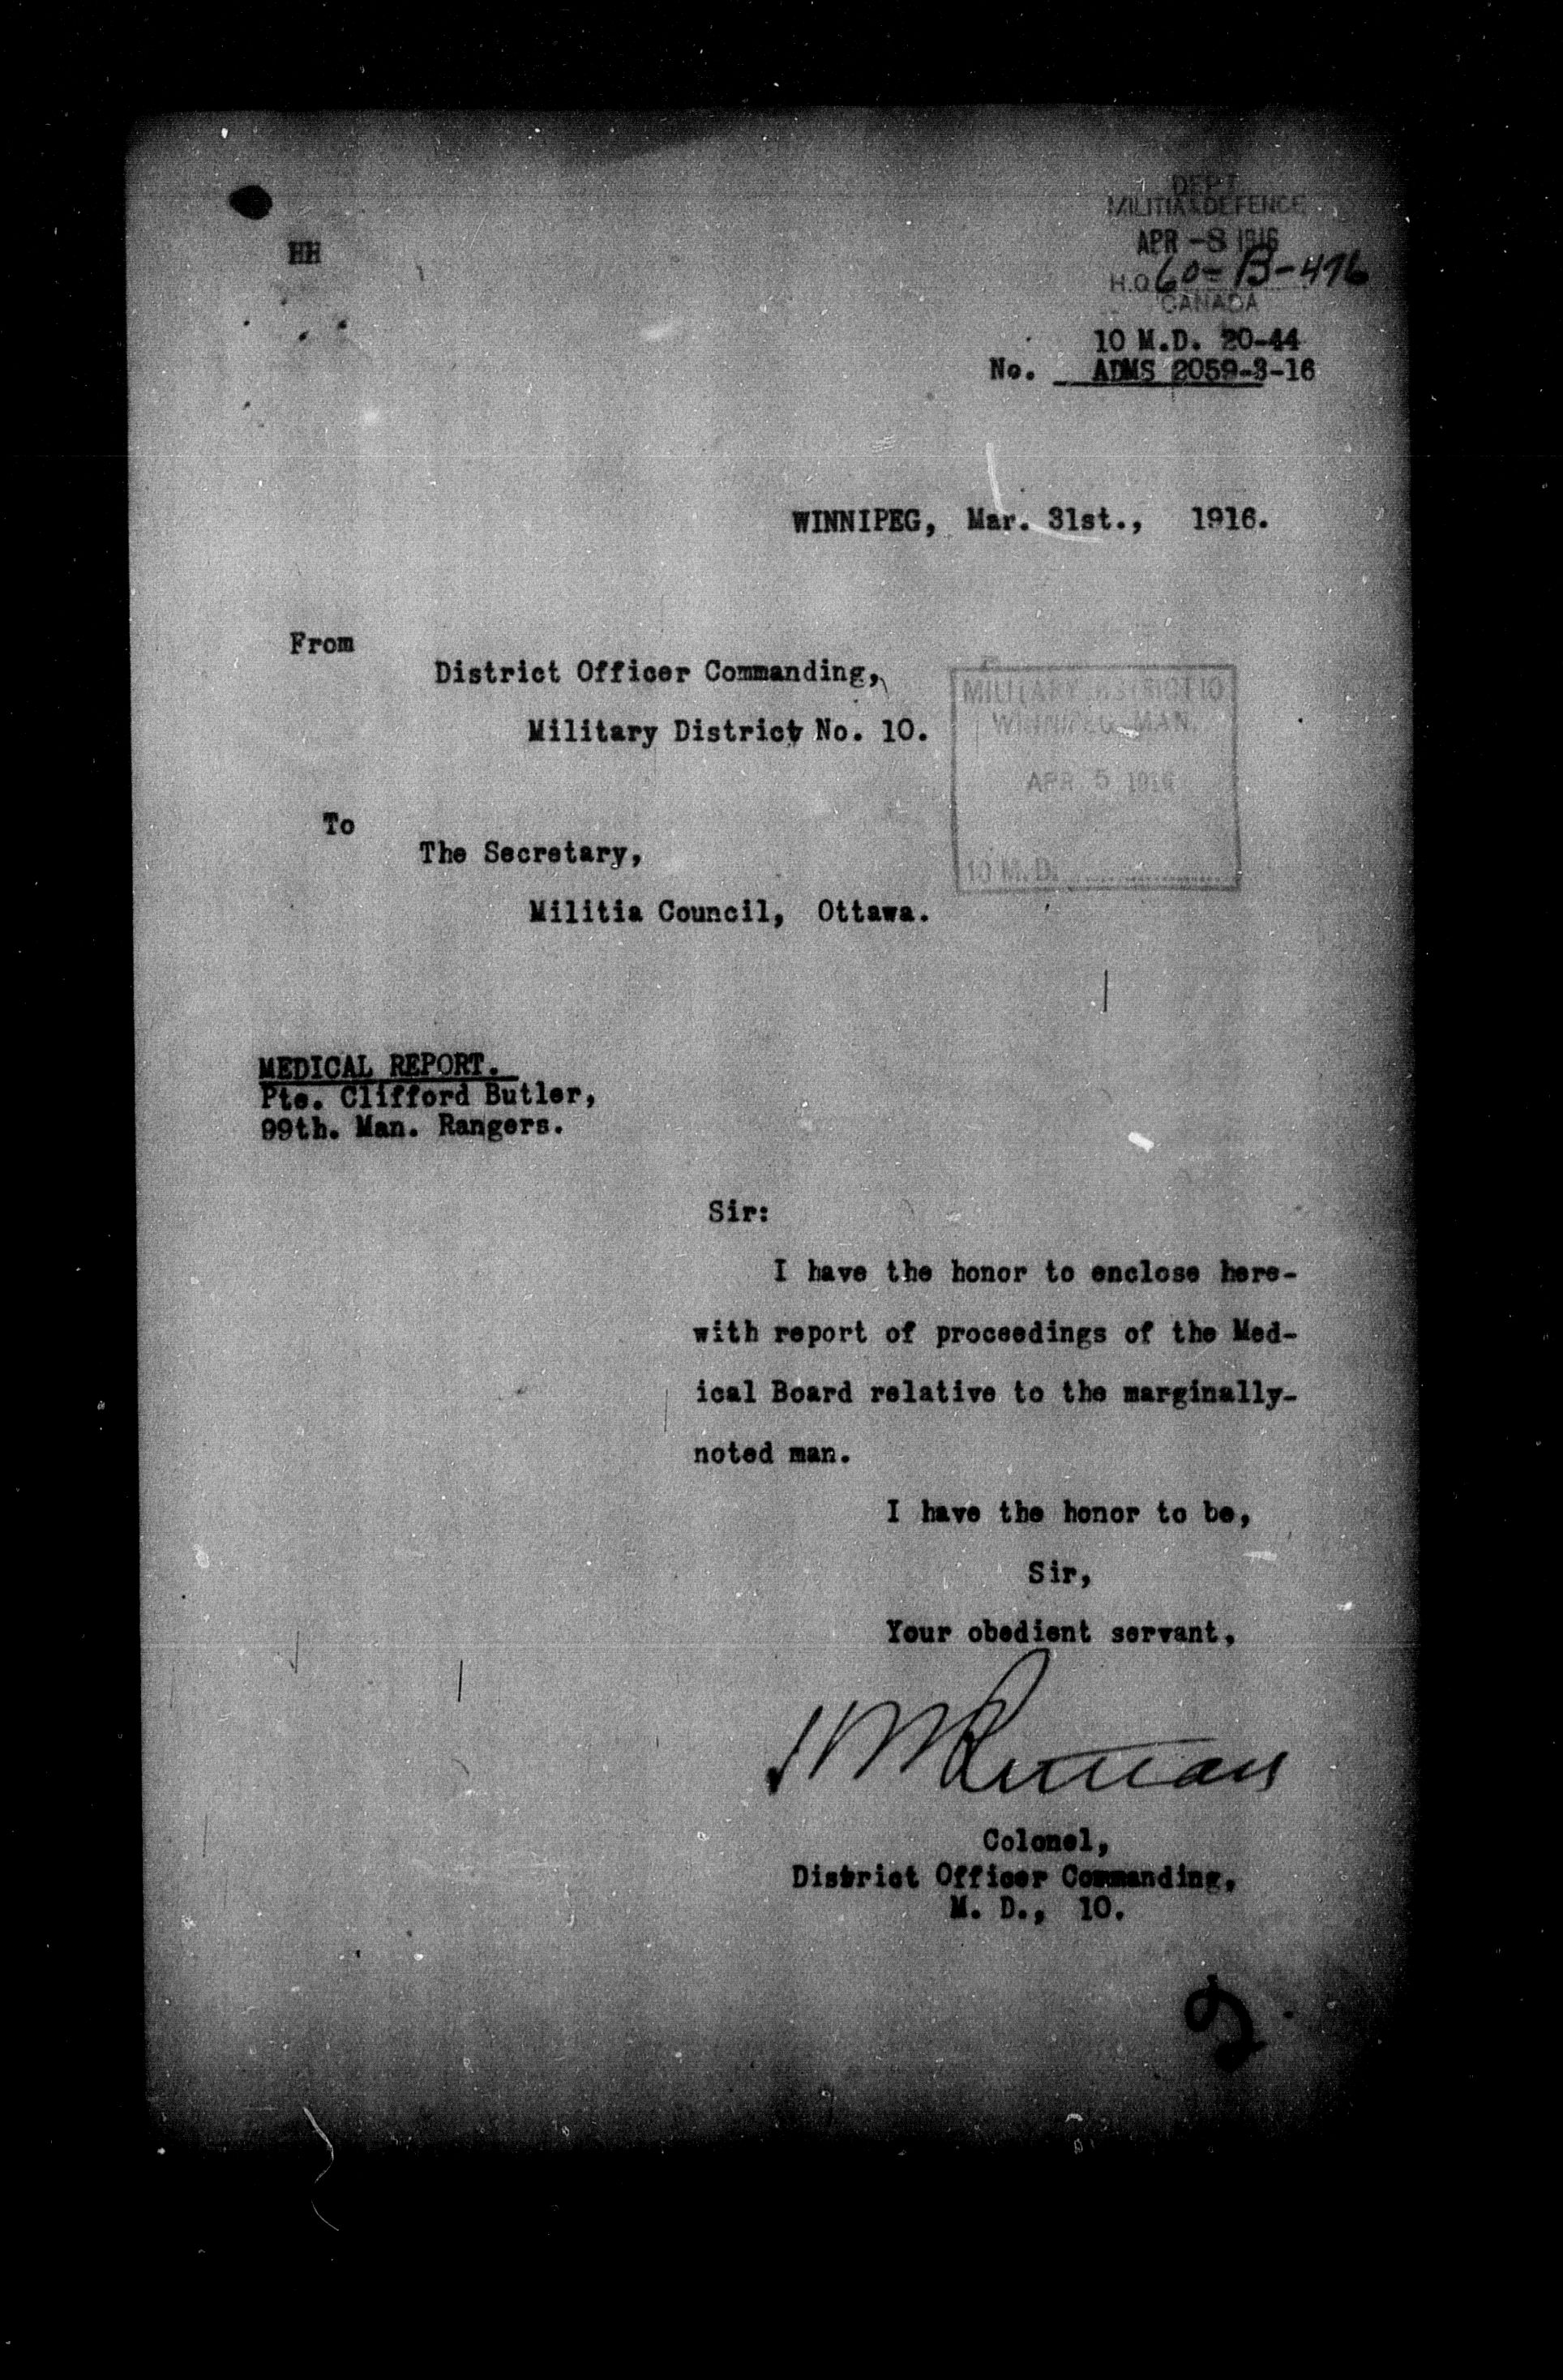 DEPT.
MILITIA & DEFENCE
APR -8 1916
H.Q. 60-B-476
CANADA
HH
10 M.D. 20-44
No. ADMS 2059-3-16
WINNIPEG, Mar. 31st., 1916.
From
District Officer Commanding,
Military District No. 10.
MILITARY DISTRICT 10
WINNIPEG, MAN.
APR 5 1916
10 M.D.
To
The Secretary,
Militia Council, Ottawa.
MEDICAL REPORT.
Pte. Clifford Butler,
99th. Man. Rangers.
Sir:
I have the honor to enclose here-
with report of proceedings of the Med-
ical Board relative to the marginally-
noted man.
I have the honor to be,
Sir,
Your obedient servant,
Colonel,
District Officer Commanding,
M. D., 10.